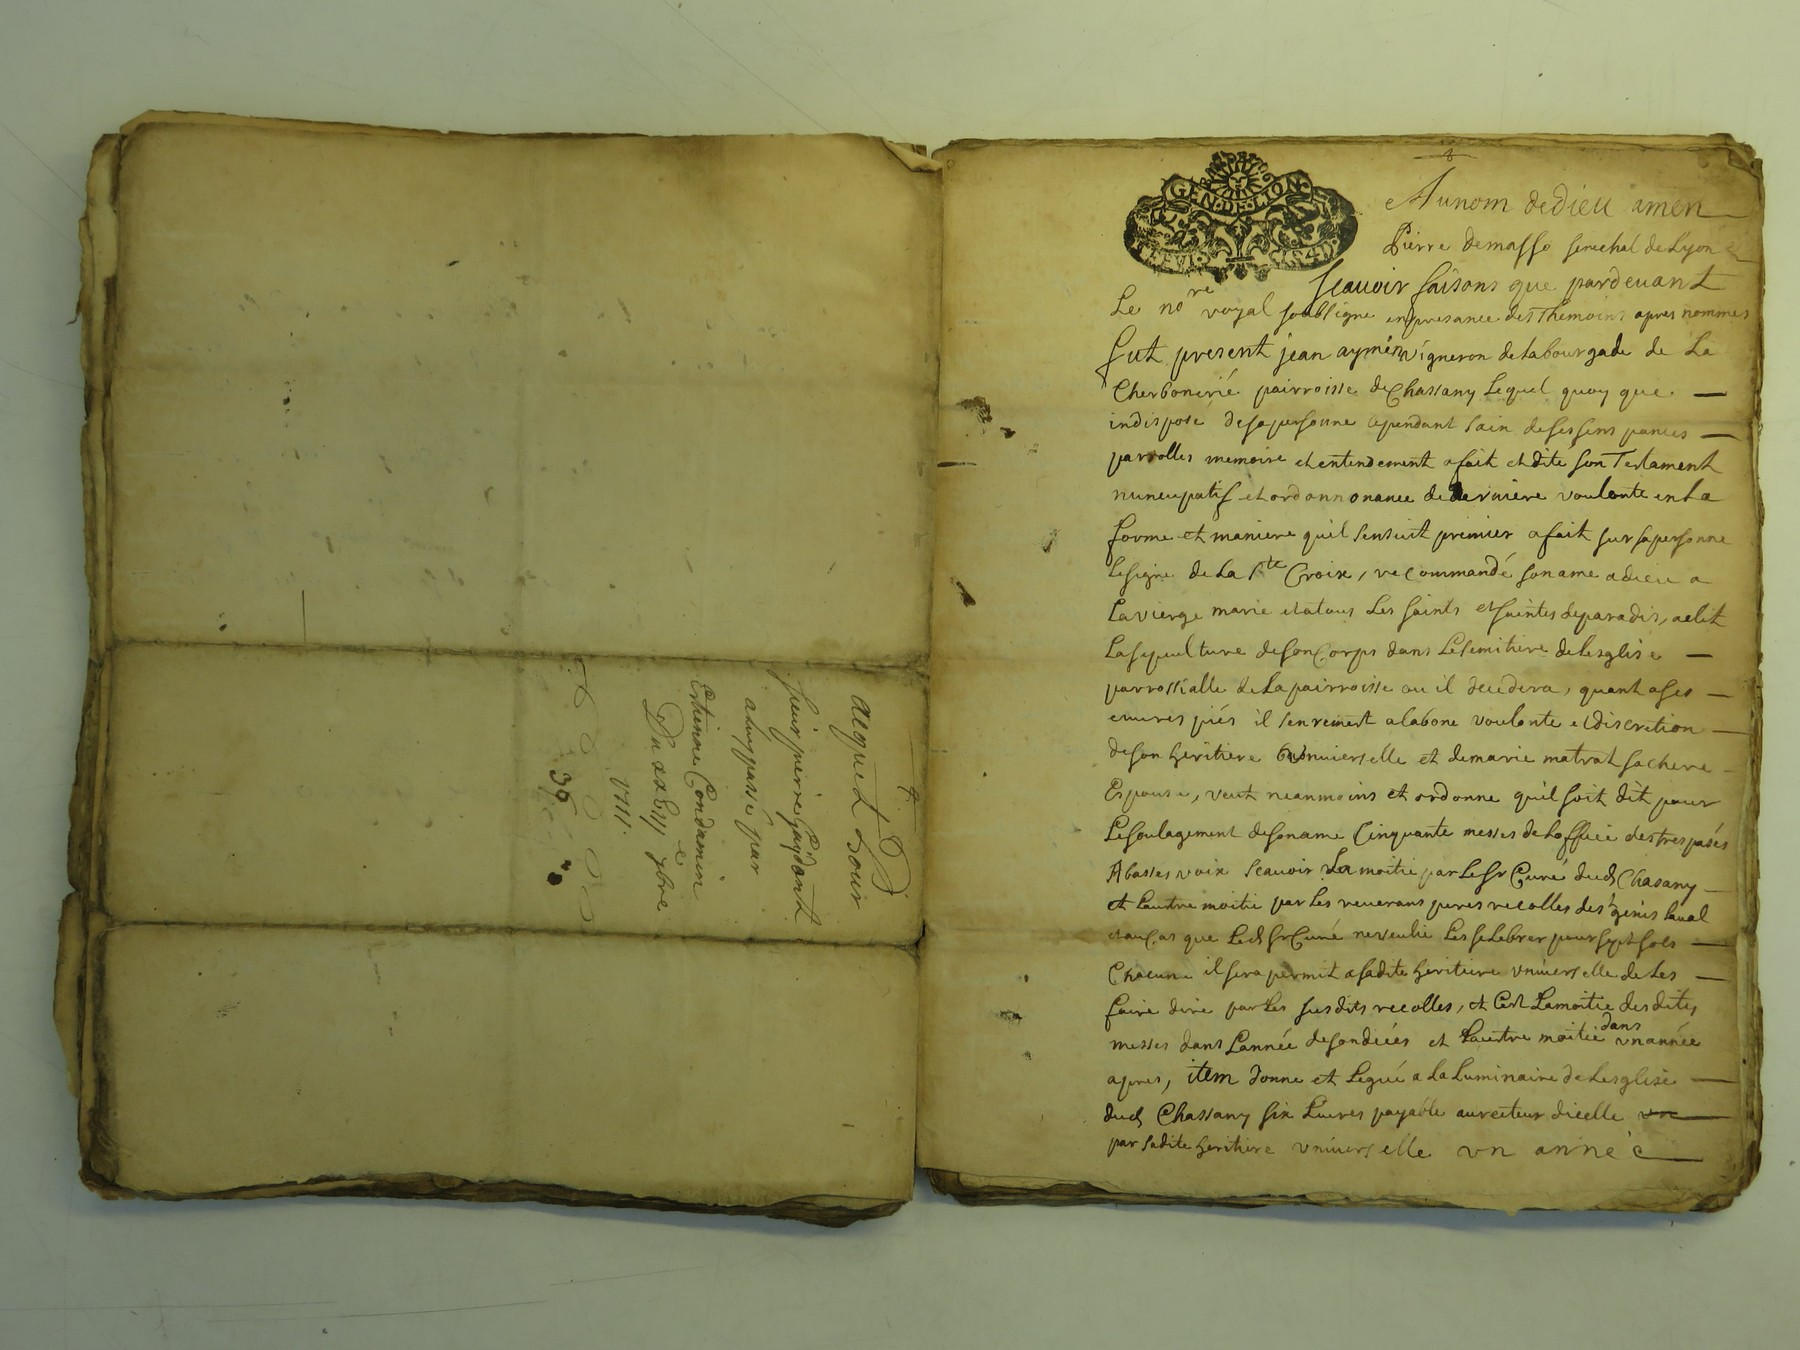 acquet pour
sieur pierre Gaydont
a luy passé par
Etienne Condamin
Du xxbiij e 7bre
1711.
30
GEN·DE·LION
Au nom de dieu amen
Pierre demasso senechal de Lyon
scauoir faisons que pardeuant
Le no re royal soubsigne en presance des Thémoins apres nommes
fut present jean aymen vigneron de la bourgade de La
Cherbonerié pairroisse de Chassany Lequel quoy que
indisposé de sa personne cependant sain de ses sens
parrolles memoire et entendement a fait et dité son Testament
nuncupatif et ordonnonance de derniere voulonte en La
forme et maniere quil sensuit premier a fait sur sa personne
Le signe de La Ste Croix, recommandé son ame a dieu a
La vierge marie et a tous Les saints et saintes de paradis, a elit
La sepulture de son Corps dans Le semitiere de Lesglise
parrossialle de La pairroisse ou il decedera, quant a ses
euures piés il sen remest a la bone voulonte et discretion
de son heritiere vniuerselle et de marie matrat sa chere
Espouse, veut neanmoins et ordonne quil soit dit pour
Le soulagement de son ame Cinquante messes de Loffice des trespasés
A basses voix scauoir La moitie par Le Sr Curé dud Chasany
et Lautre moitié par Les reuerans peres recolles de st genis Laual
et au Cas que Led Sr Curé ne veulie Les selebrer pour sept sols
Chacune il sera permit a sadite heritiere vniuerselle de Les
faire dire par Les susdits recolles, et Cest La moitie desdites
messes dans Lannée de son décés et Lautre moitié dans vn année
apres, item donne et Legué a La Luminaire de Lesglise
dud Chassany six Liures payable au recteur dicelle
par sadite heritiere vniuerselle vn année